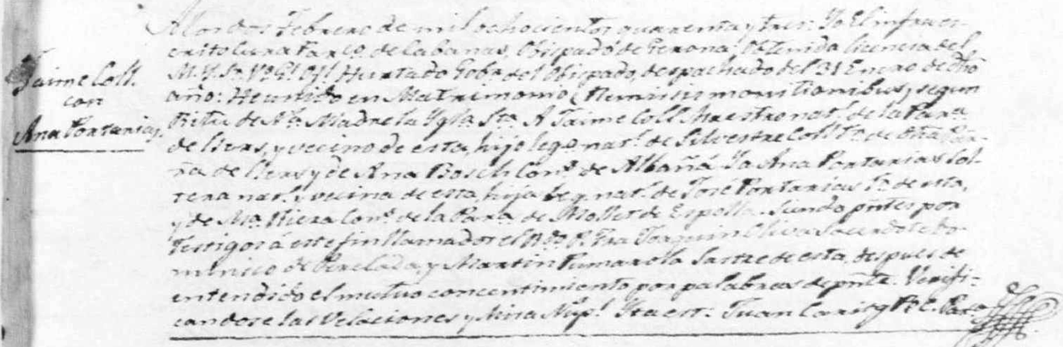 A los dos Febrero de mil ochocientos quarenta y tres. Yo El infraes-
crito Cura Parco. de Cabanas, Obispado de Gerona: Obtenida licencia del
Jaime Coll.
con
Ana Fontanias
M. Y. Sr. Vo. Gl. Ofl. Hurtado Gobr. del Obispado, despachado del 31 Enero de dho
año: He unido en Matrimonio (Remissis monitionibus, y segun
Ritu de Na. Madre la Ygla. Sta. A Jaime Coll Maestro natl. de la Parra.
de Liers, y vecino de esta, hijo lego. natl. de Silvestre Coll
de Liers y de Ana Bosch Cons. de Albañá. Ya Ana Fontanias Sol-
tera nat. y vecina de esta, hija leg. nat. de José Fontanias de esta,
y de Ma. Riera Cons. de la Parra. de Mollet de Espolla. Siendo pntes por
Testigos a este fin llamados el Rdo. P. Fra Joaquin Oliva Sacerdote Do-
minico de Perelada, y Martin Fumarola Sastre de esta, despues de
entendido el mutuo concentimiento por palabras de pnte. Verifi-
candose las Velaciones y Misa Nupl. Ita est. Juan